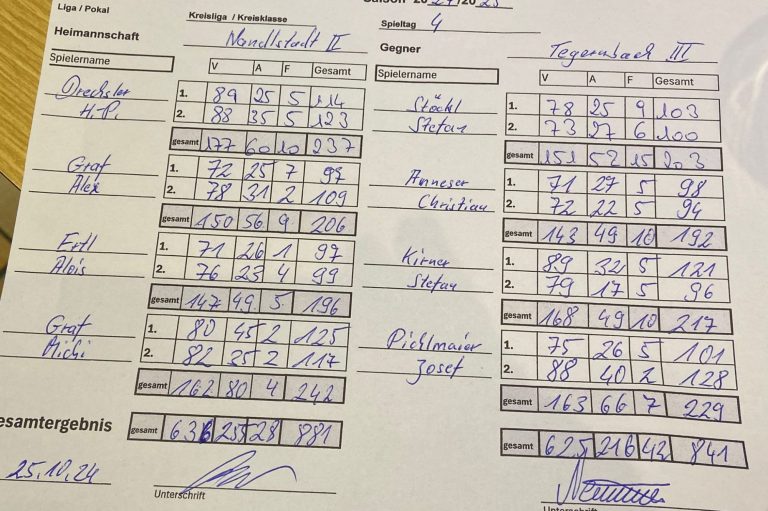 Liga / Pokal
Kreisliga / Kreisklasse
Spieltag 4
Heimmannschaft Nandlstadt II
Gegner Tegernbach III
Spielername V A F Gesamt
Spielername V A F Gesamt
Drechsler 1. 89 25 5 114
H.P. 2. 88 35 5 123
gesamt 177 60 10 237
Stöckl 1. 78 25 9 103
Stefan 2. 73 27 6 100
gesamt 151 52 15 203
Graf 1. 72 25 7 97
Alex 2. 78 31 2 109
gesamt 150 56 9 206
Anneser 1. 71 27 5 98
Christian 2. 72 22 5 94
gesamt 143 49 10 192
Ertl 1. 71 26 1 97
Alois 2. 76 23 4 99
gesamt 147 49 5 196
Kirner 1. 89 32 5 121
Stefan 2. 79 17 5 96
gesamt 168 49 10 217
Graf 1. 80 45 2 125
Michi 2. 82 35 2 117
gesamt 162 80 4 242
Pichlmaier 1. 75 26 5 101
Josef 2. 88 40 2 128
gesamt 163 66 7 229
esamtergebnis gesamt 636 28 881
gesamt 625 216 42 841
25.10.24
Unterschrift